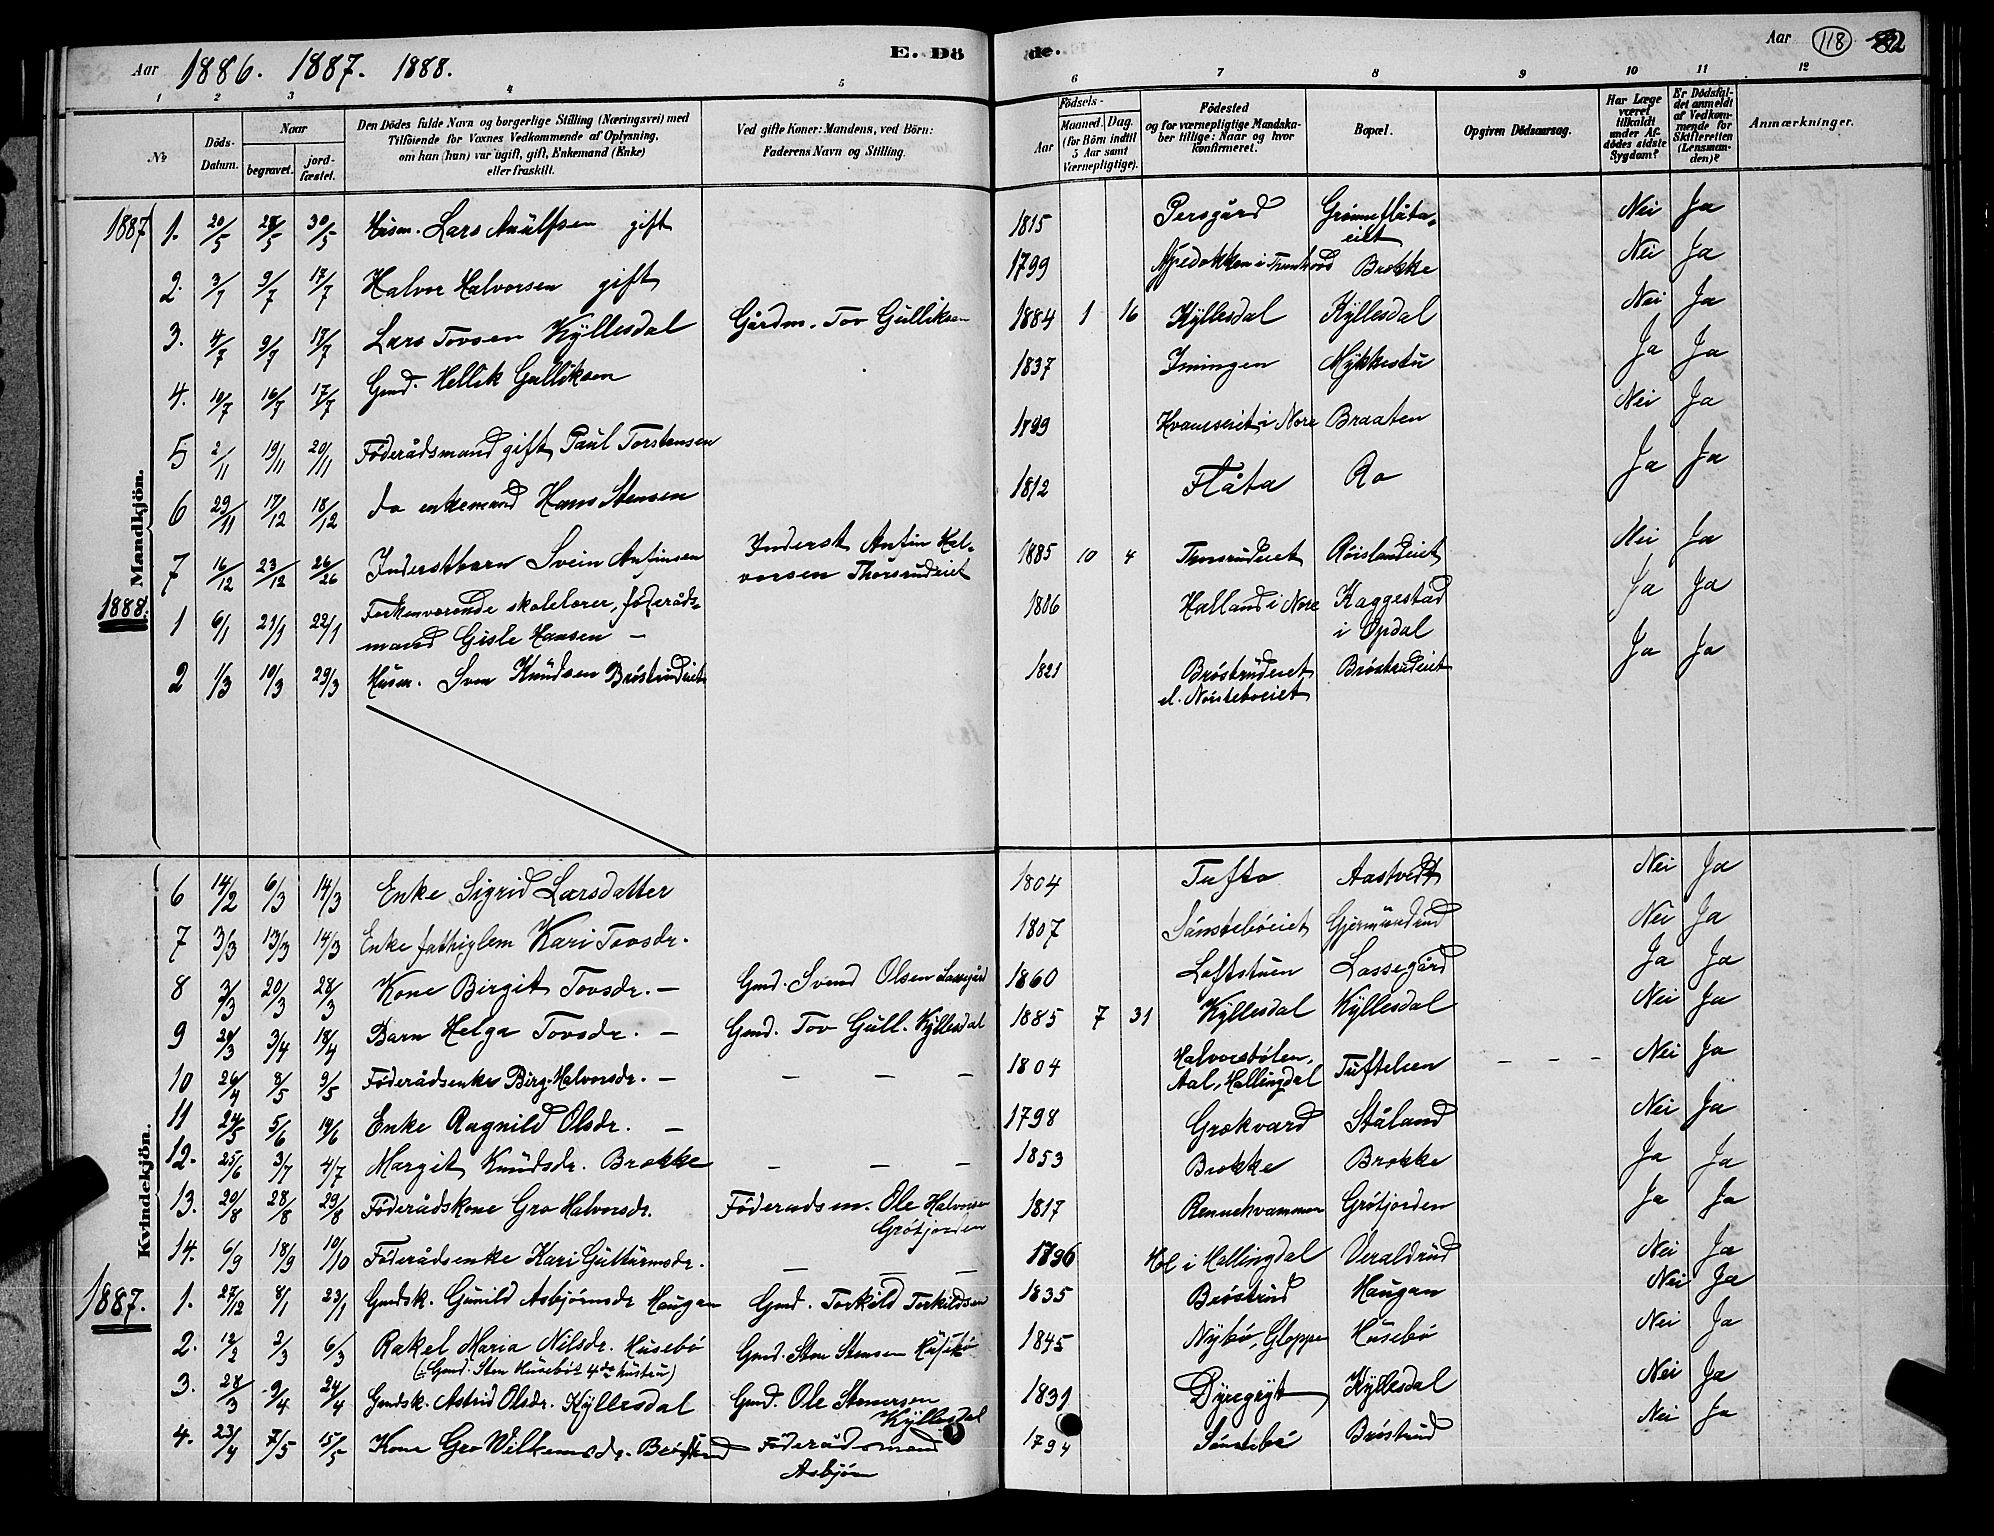 Aar 1886. 1887. 1888. E. Dö de. Aar 118 82
1 2 3 4 5 6 7 8 9 10 11 12
No Döds-Datum. Naar begravet. jord-fæstet. Den Dödes fulde Navn og borgerlige Stilling (Næringsvei) med Tilföiende for Voxnes Vedkommende af Oplysning, om han (hun) var ugift, gift, Enkemand (Enke) eller fraskilt. Ved gifte Koner: Mandens, ved Börn: Faderens Navn og Stilling. Födsels- Aar Maaned. Dag. (for Börn indtil 5 Aar samt Værnepligtige). Födested og for værnepligtige Mandskaber tillige: Naar og hvor konfirmeret. Bopæl. Opgiven Dödsaarsag. Har Læge været tilkaldt under Afdödes sidste Sygdom? Er Dödsfaldet anmeldt af Vedkommende for Skifteretten (Lensmanden)? Anmærkninger.
Mandkjön.
1887 1. 20/5 28/5 30/5 Husm. Lars Anülfsen gift 1815 Persgård Grønneflåta-eiet Nei Ja
2. 3/7 9/7 17/7 Halvor Halvorsen gift 1799 i Tunhovd Brokke Nei Ja
3. 4/7 9/7 17/7 Lars Tovsen Kÿllesdal Gårdm. Tov Gülliksen 1884 1 16 Kÿllesdal Kÿllesdal Nei Ja
4. 10/7 16/7 17/7 Gmd. Hellik Gülliksen 1837 Imingen Mÿkkestü Ja Ja
5 2/11 19/11 20/11 Föderådsmand gift Paul Torstensen 1799 i Nore Braaten Nei Ja
6 29/11 17/12 18/12 do enkemand Hans Stensen 1812 Flåta Ro Ja Ja
7 16/12 23/12 26/26 Inderstbarn Svein Anfinsen Inderst Anfin Halvorsen Thorsrüdeiet 1885 10 4 Thorsrüdeiet Röislandeiet Nei Ja
1888. 1 6/1 21/1 22/1 Forhenværende skolelærer, föderådsmand Gisle Hansen – 1806 Halland i Nore Kaggestad i Opdal Ja Ja
2 1/3 10/3 29/3 Husm. Sven Knüdsen Bröstrüdeiet 1821 Bröstrüdeiet el. Nörsteböeiet Bröstrüdeiet Ja Ja
Kvindekjön.
6 14/2 6/3 14/3 Enke Sigrid Larsdatter 1804 Tufto Aastvedt Nei Ja
7 3/3 13/3 14/3 Enke fathiglem Kari Tovsdr. 1807 Sönsteböeiet Gjermündrüd Nei Ja
8 3/3 20/3 28/3 Kone Birgit Tovsdr. – Gmd. Svend Olsen Lassegård 1860 Loftstüen Lassegård Ja Ja
9 28/3 3/4 18/4 Barn Helga Tovsdr. – Gmd. Tov Gull. Kÿllesdal 1885 7 31 Kÿllesdal Kÿllesdal Nei Ja
10 26/4 8/5 9/5 Föderådsenke Birg. Halvorsdr. – – – – 1804 Halvorsbölen, Aal, Hallingdal Tüftelien – – – Nei Ja
11 24/5 5/6 14/6 Enke Ragnild Olsdr. – 1798 Grokvard Ståland Nei Ja
12. 25/6 3/7 4/7 Margit Knüdsdr. Brokke – – – 1853 Brokke Brokke Ja Ja
13. 20/8 28/8 29/8 Föderådskone Gro Halvorsdr. Föderadsm. Ole Halvorsen Grötjorden 1817 Rennehvammen Grötjorden Ja Ja
14. 6/9 18/9 10/10 Föderådsenke Kari Gülturmsdr. – – – 1796 Hol i Hallingdal Veraldrüd Nei Ja
1887. 1. 27/12 8/1 23/1 Gmdsk. Günild Asbjörnsdr Haugan Gmd. Torkild Torkildsen 1835 Bröstrüd Haugan Nei Ja
2. 12/2 3/3 6/3 Rakel Maria Nilsdr. Husebö (: Gmd. Sten Husebös 4de hüstrü) Gmd. Sten Stensen Husebö 1845 Nÿbö, Gloppen Husebö Nei Ja
3. 28/3 9/4 24/4 Gmdsk. Astrid Olsdr. Kÿllesdal Gmd. Ole Stenersen Kÿllesdal 1831 Dÿregrÿt Kÿllesdal Nei Ja
4. 23/4 7/5 15/5 Kone Gro Villumsdr. Bröstrüd Föderådsmand Asbjörn 1794 Sönstebö Bröstrüd Nei Ja